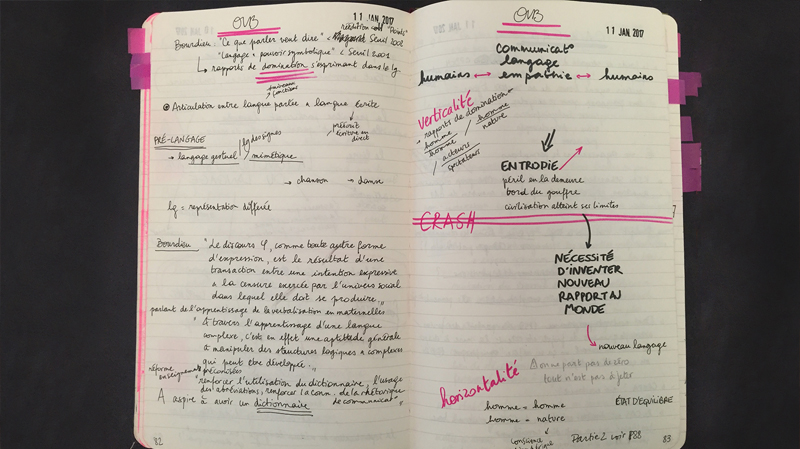 OVB
11 JAN. 2017
réédition coll "Points"
Bourdieu : "Ce que parler veut dire" Seuil 2001
"Langage & pouvoir symbolique" Seuil 2001
↳ rapports de domination s'exprimant dans le lg.
fonctions
Articulation entre langue parlée & langue écrite
écriture en
direct
PRÉ-LANGAGE
lg des signes
→ langage gestuel / mimétique
→ chanson → danse
lg = représentation différée
Bourdieu "Le discours φ, comme toute autre forme
d'expression, est le résultat d'une
transaction entre une intention expressive
& la censure exercée par l'univers social
dans lequel elle doit se produire."
parlant de l'apprentissage de la verbalisation en maternelles
"A travers l'apprentissage d'une langue
complexe, c'est en effet une aptitude générale
à manipuler des structures logiques & complexes
qui peut être développée."
réforme enseignement
préconisée
renforcer l'utilisation du dictionnaire, l'usage
des abréviations, renforcer la conn. de la rhétorique
de communicat°"
A aspire à avoir un dictionnaire
82
OVB
11 JAN. 2017
communicat°
langage
humains ↔ empathie ↔ humains
verticalité
rapports de domination
homme / homme
homme / nature
acteurs
spectateurs
ENTRODIE
péril en la demeure
bord du gouffre
civilisation atteint ses limites
CRASH
NÉCESSITÉ
D'INVENTER
NOUVEAU
RAPPORT AU
MONDE
nouveau langage
horizontalité
on ne part pas de zéro
tout n'est pas à jeter
homme = homme
homme = nature
ÉTAT D'ÉQUILIBRE
conscience
Partie 2 voir P88
83